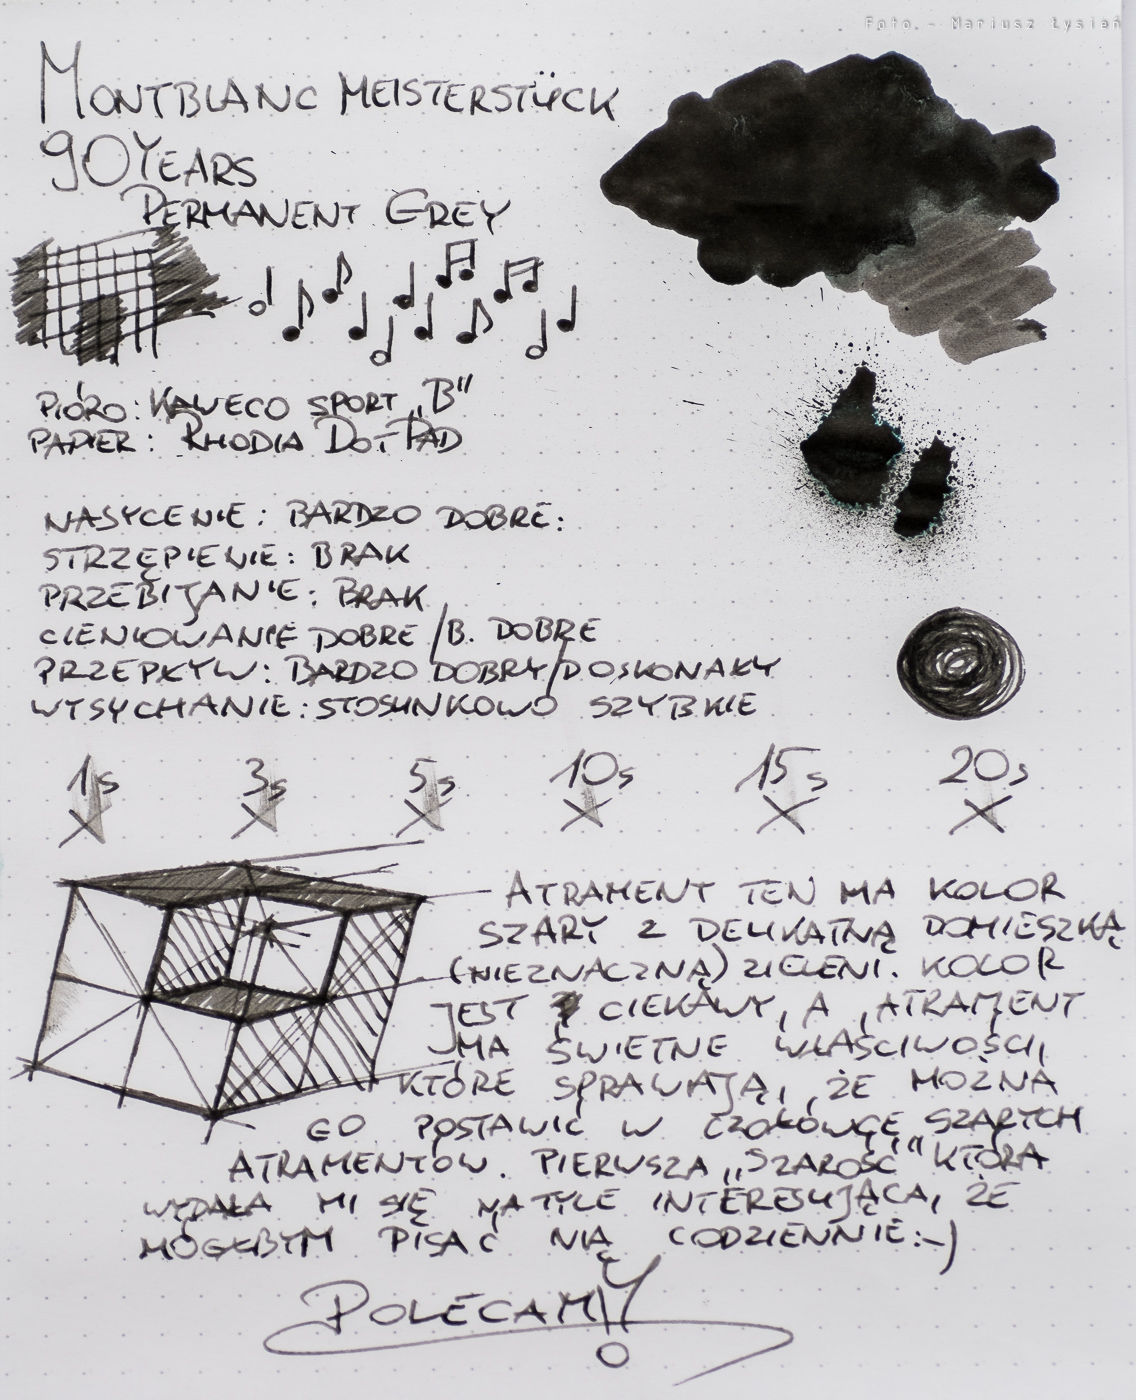 Foto. - Mariusz Łysień
MONTBLANC MEISTERSTÜCK
90 YEARS
PERMANENT GREY
PIÓRO: KAWECO SPORT „B"
PAPIER: RHODIA DOTPAD
NASYCENIE: BARDZO DOBRE:
STRZĘPIENIE: BRAK
PRZEBIJANIE: BRAK
CIENIOWANIE DOBRE / B. DOBRE
PRZEPŁYW: BARDZO DOBRY/DOSKONAŁY
WYSYCHANIE: STOSUNKOWO SZYBKIE
1s 3s 5s 10s 15s 20s
ATRAMENT TEN MA KOLOR
SZARY Z DELIKATNĄ DOMIESZKĄ
(NIEZNACZNĄ) ZIELENI. KOLOR
JEST CIEKAWY, A ATRAMENT
MA ŚWIETNE WŁAŚCIWOŚCI,
KTÓRE SPRAWIAJĄ, ŻE MOŻNA
GO POSTAWIĆ W CZOŁÓWCE SZARYCH
ATRAMENTÓW. PIERWSZA „SZAROŚĆ" KTÓRA
WYDAŁA MI SIĘ NA TYLE INTERESUJĄCA, ŻE
MÓGŁBYM PISAĆ NIĄ CODZIENNIE:-)
POLECAM!!